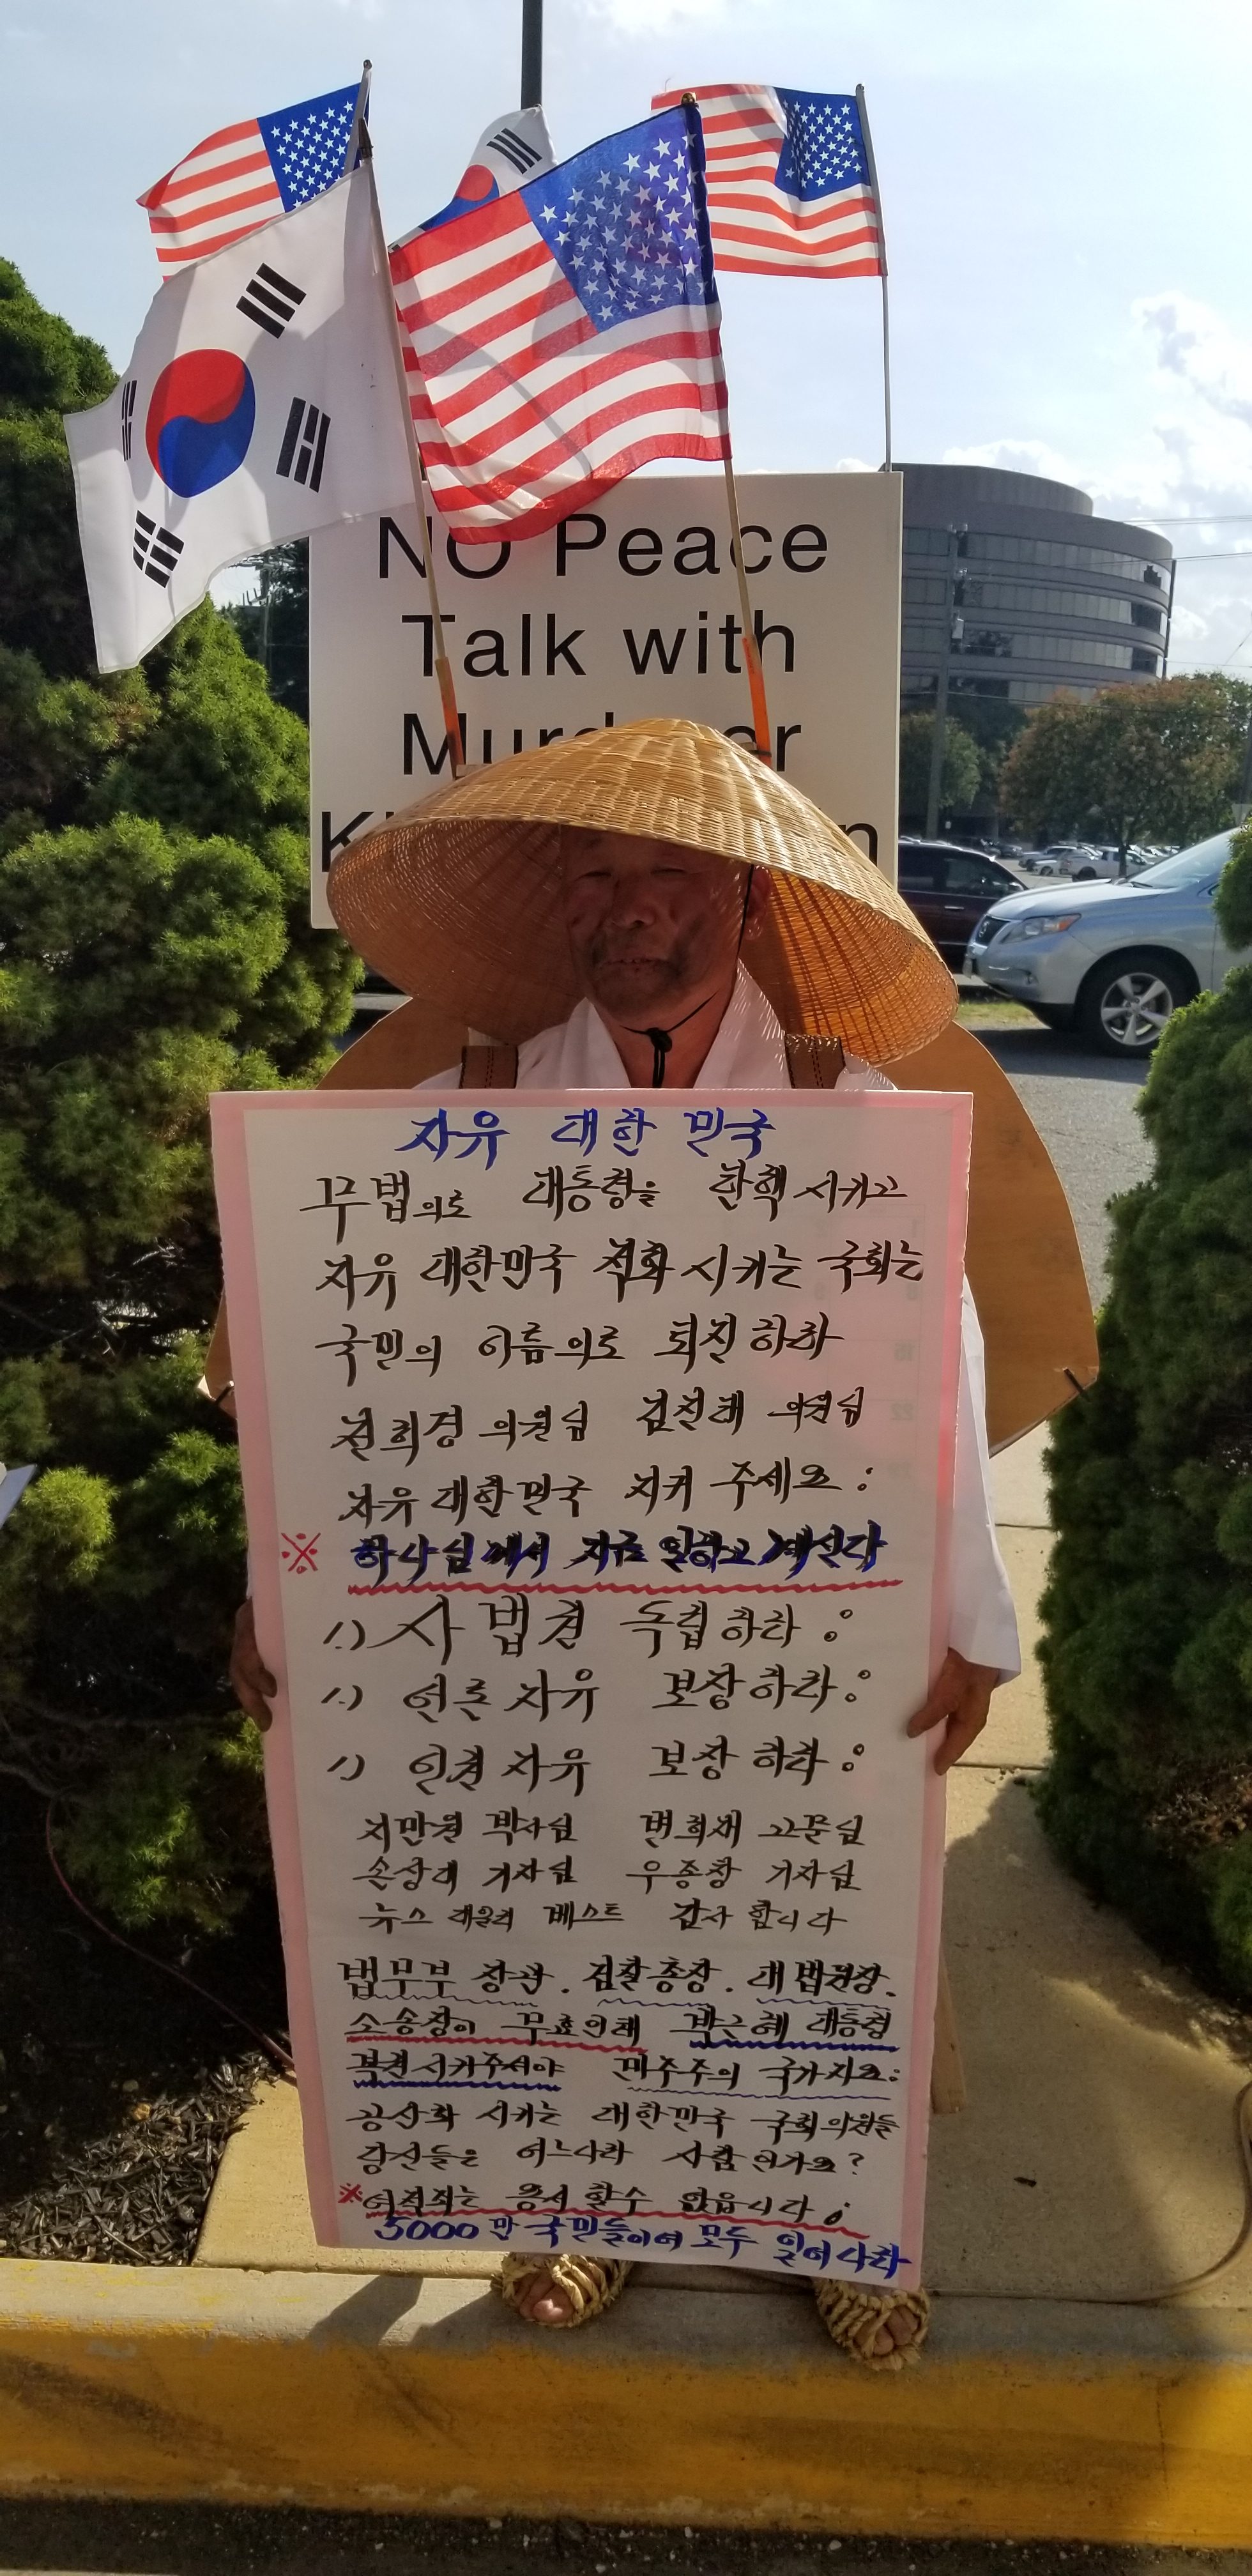 NO Peace
Talk with
자유 대한 민국
무법의로 대통령을 탄핵 시키고
자유 대한민국 적화 시키는 국회는
국민의 이름의로 퇴진 하라
전희경 의원님 김진태 의원님
자유 대한민국 지켜 주세요
※ 하나님께서 지금 일하고 계신다
1.) 사법권 독립하라
1.) 언론자유 보장하라
1) 인권자유 보장하라
지만원 박사님 변희재 고문님
손상대 기자님 우종창 기자님
뉴스 베스트 감사 합니다
법무부 장관. 검찰총장. 대법원장.
소송장이 무효인데 박근혜 대통령
복권시켜주셔야 민주주의 국가지요:
공산화 시키는 대한민국 국회의원들
당신들은 어느나라 사람인가요?
※여적죄는 용서 할수 없읍니다
5000만 국민들이여 모두 일어나라